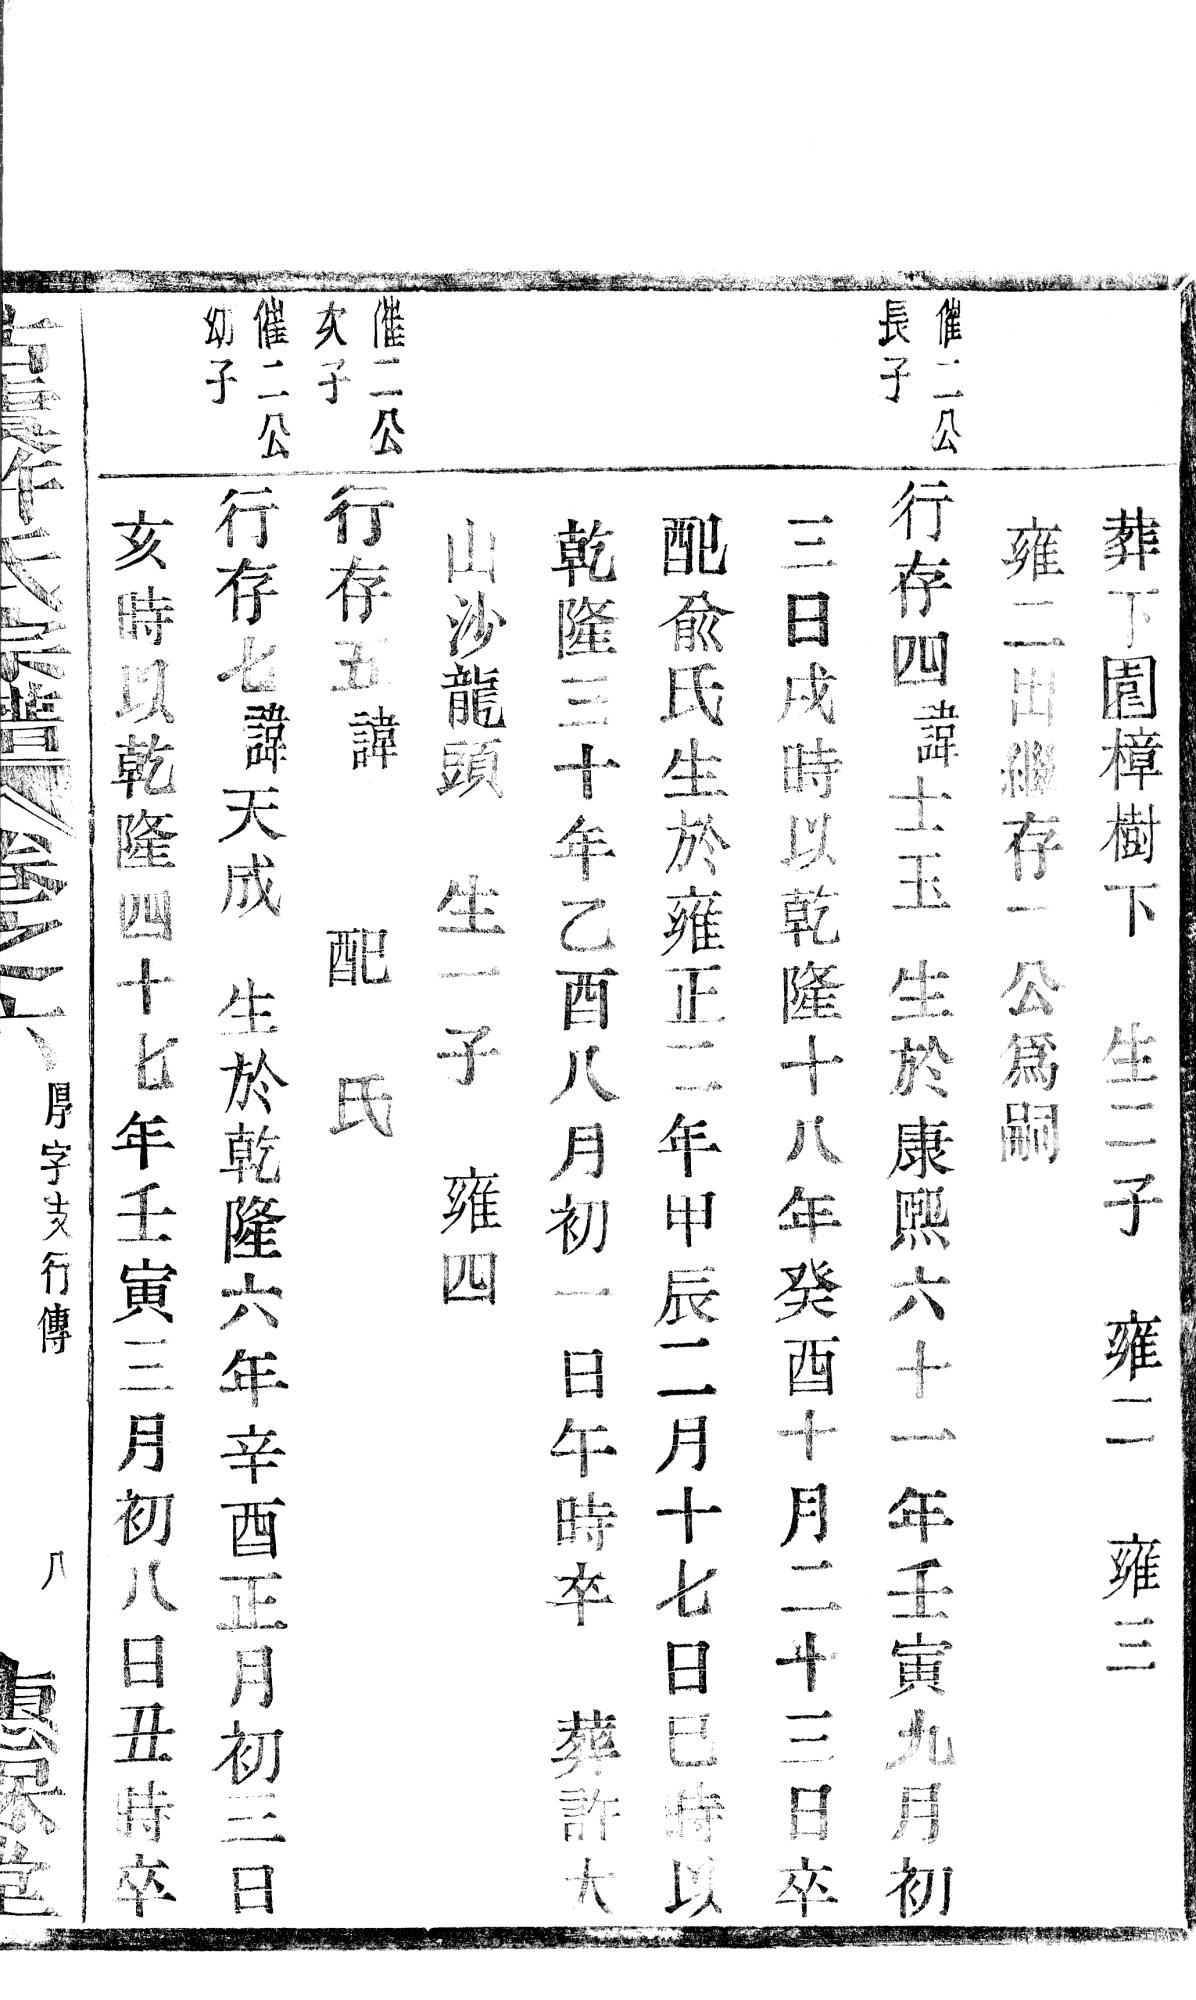 葬下園樟樹下　生二子　雍二　雍三
雍二出繼存一公爲嗣
催二公
長子
行存四諱士玉　生於康熙六十一年壬寅九月初
三日戌時以乾隆十八年癸酉十月二十三日卒
配兪氏生於雍正二年甲辰二月十七日巳時以
乾隆三十年乙酉八月初一日午時卒　葬許大
山沙龍頭　生一子　雍四
催二公
次子
行存五諱　　配　氏
催二公
幼子
行存七諱天成　生於乾隆六年辛酉正月初三日
亥時以乾隆四十七年壬寅三月初八日丑時卒
古虞許氏宗譜　卷之六　厚字支行傳　八